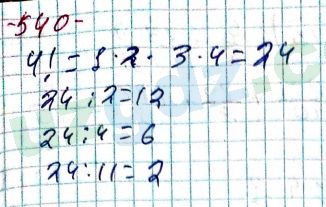 -540-
4! = 1·2·3·4=24
24:2=12
24:4=6
24:11=2